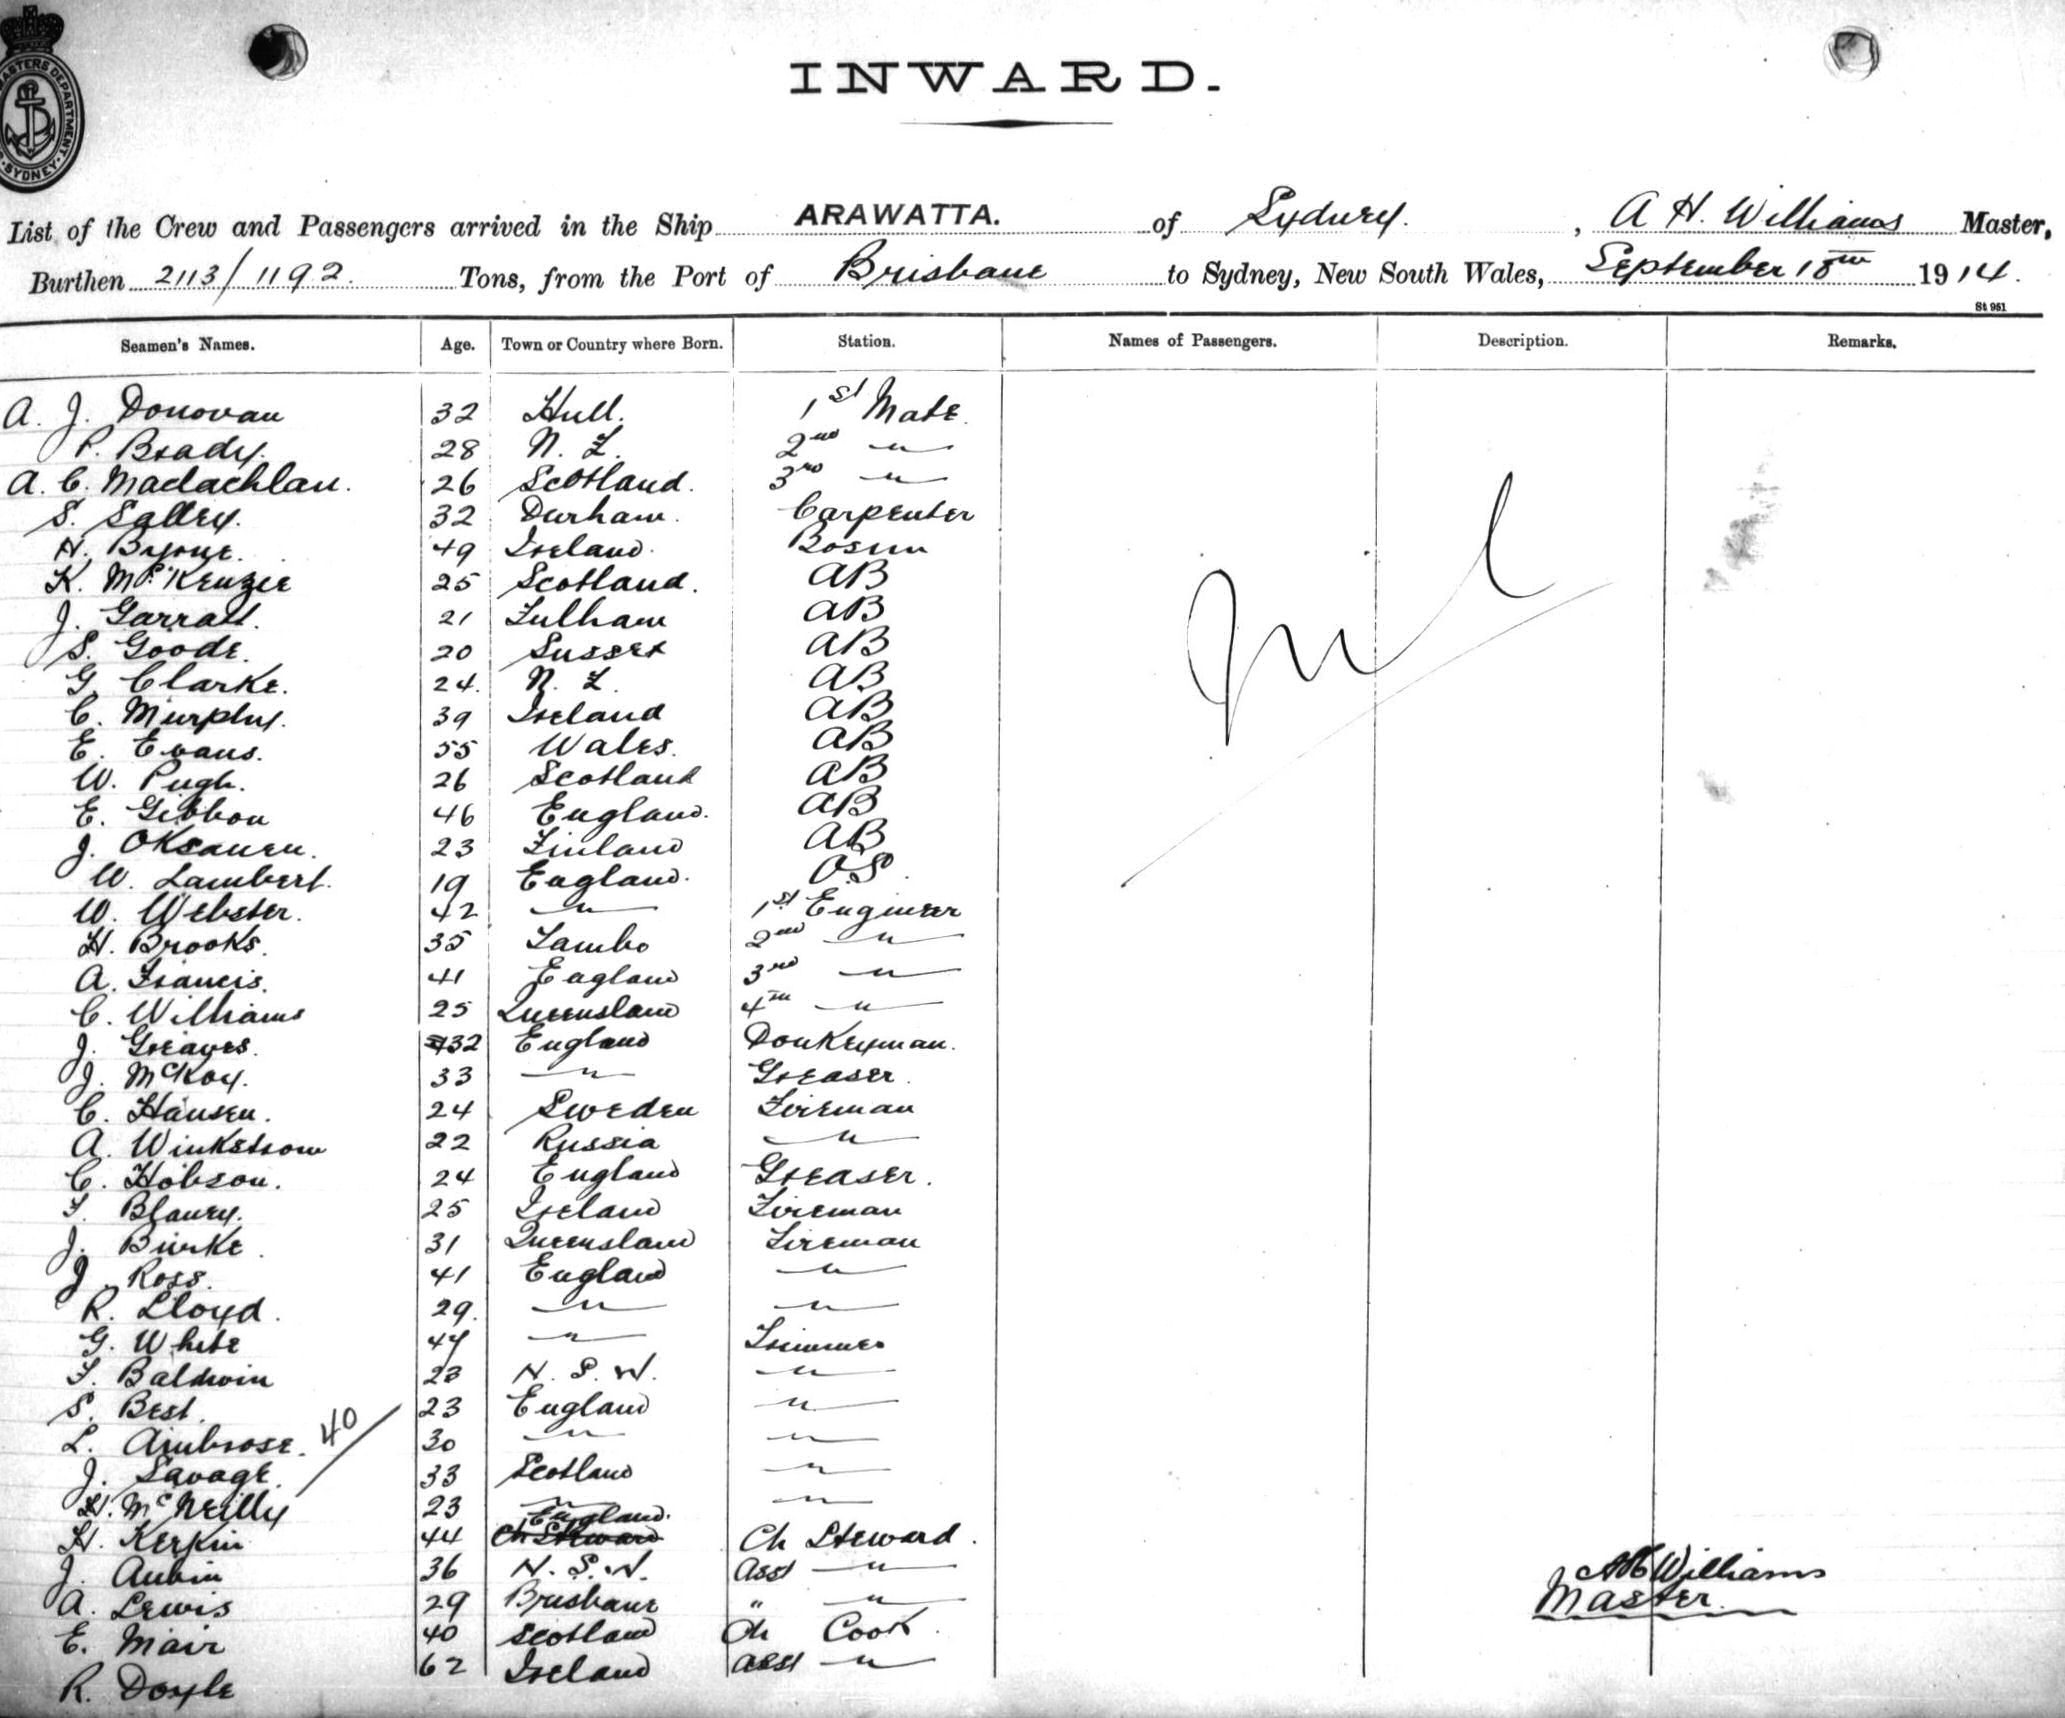 MASTERS DEPARTMENT
SYDNEY
INWARD.
List of the Crew and Passengers arrived in the Ship ARAWATTA. of Sydney. , A H. Williams Master,
Burthen 2113/1192. Tons, from the Port of Brisbane to Sydney, New South Wales, September 18th 1914.
St 951
Seamen's Names. Age. Town or Country where Born. Station. Names of Passengers. Description. Remarks.
A. J. Donovan 32 Hull. 1st Mate.
P. Brady. 28 N. Z. 2nd "
A. C. Maclachlan. 26 Scotland. 3rd "
S. Salley. 32 Durham. Carpenter
H. Byrne. 49 Ireland. Bosun
K. McKenzie 25 Scotland. AB
J. Garratt. 21 Fulham AB
S. Goode. 20 Sussex AB
G. Clarke. 24. N. Z. AB
C. Murphy. 39 Ireland AB
E. Evans. 55 Wales. AB
W. Pugh. 26 Scotland AB
E. Gibbon 46 England. AB
J. Oksanen. 23 Finland AB
W. Lambert. 19 England. O.S.
W. Webster. 42 " 1st Engineer
H. Brooks. 35 2nd "
A. Francis. 41 England 3rd "
C. Williams 25 Queensland 4th "
J. Greaves. 32 England Donkeyman.
J. McKoy. 33 " Greaser.
C. Hansen. 24 Sweden Fireman
A. Winkstrom 22 Russia "
C. Hobson. 24 England Greaser.
F. Blaney. 25 Ireland Fireman
J. Burke. 31 Queensland Fireman
J. Ross. 41 England "
R. Lloyd. 29. " "
G. White 44 " Trimmer
F. Baldwin 23 N. S. W. "
S. Best. 23 England "
L. Ambrose. 30 " "
J. Savage. 33 Scotland "
H. McNeilly 23 " "
H. Kerkin 44 England. Ch Steward Ch Steward.
J. Aubin 36 N. S. W. Asst "
A. Lewis 29 Brisbane " "
E. Mair 40 Scotland Ch Cook.
R. Doyle 62 Ireland Asst "
40
Nil
AH Williams
Master.